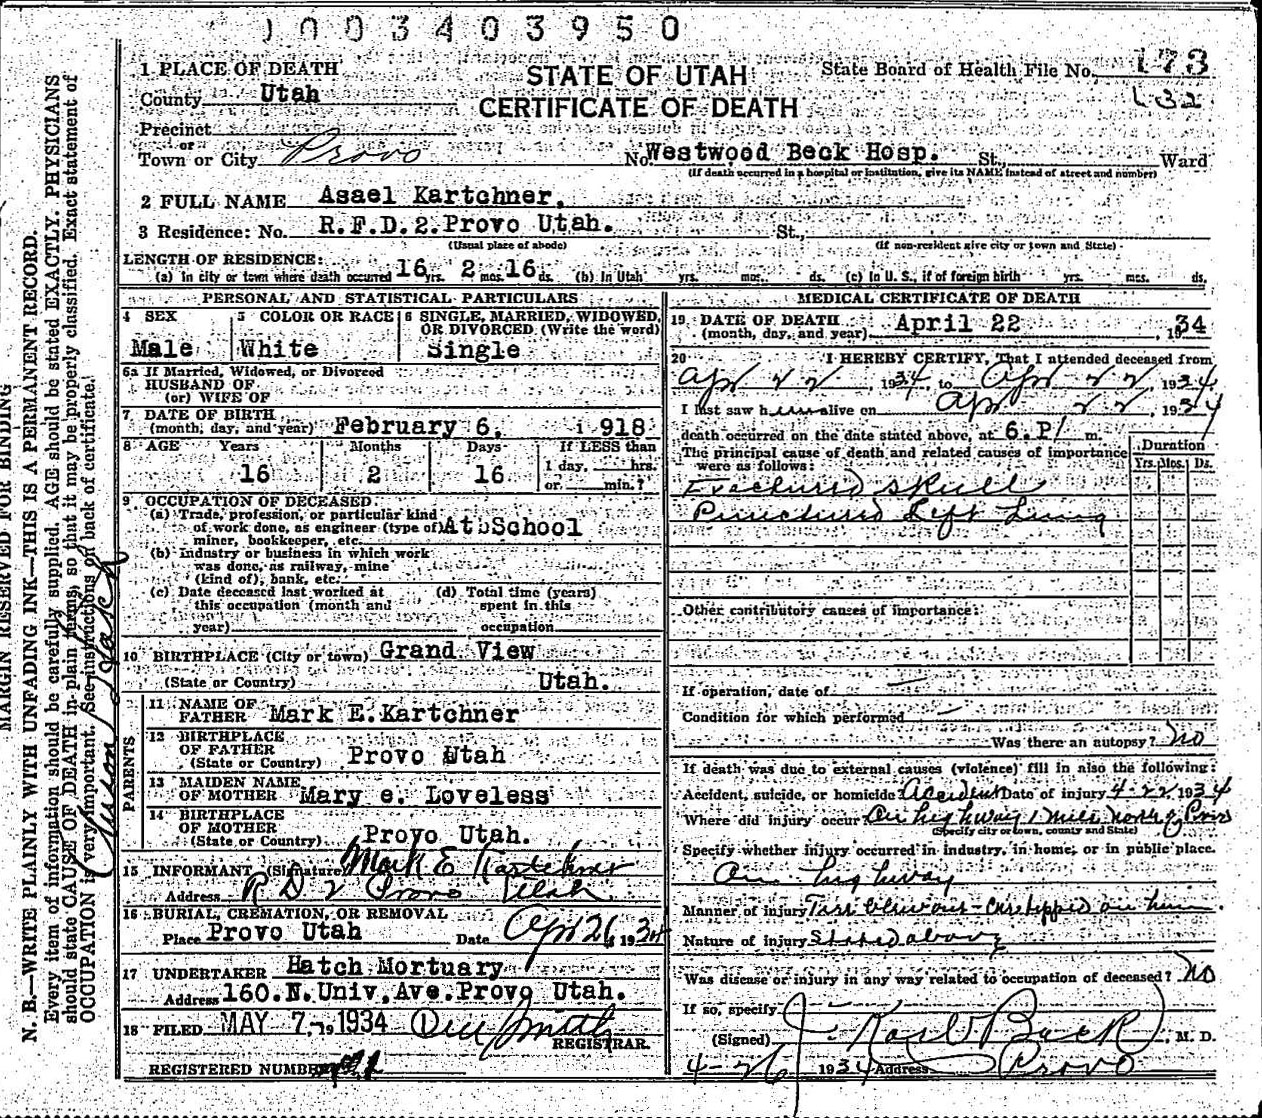 1003403950
1 PLACE OF DEATH
STATE OF UTAH
State Board of Health File No. 173
County Utah
CERTIFICATE OF DEATH
132
Precinct
or
Town or City Provo No. Westwood Beck Hosp. St., Ward
(If death occurred in a hospital or institution, give its NAME instead of street and number)
2 FULL NAME Asael Kartchner.
3 Residence: No. R.F.D.2.Provo Utah. St.,
(Usual place of abode) (If non-resident give city or town and State)
LENGTH OF RESIDENCE:
(a) In city or town where death occurred 16 yrs. 2 mos. 16 ds. (b) In Utah yrs. mos. ds. (c) In U. S., if of foreign birth yrs. mos. ds.
PERSONAL AND STATISTICAL PARTICULARS
4 SEX
Male
5 COLOR OR RACE
White
6 SINGLE, MARRIED, WIDOWED,
OR DIVORCED (Write the word)
Single
6a If Married, Widowed, or Divorced
HUSBAND OF
(or) WIFE OF
7 DATE OF BIRTH
(month, day, and year) February 6. 1918
8 AGE Years Months Days If LESS than
16 2 16 1 day, hrs.
or min.?
9 OCCUPATION OF DECEASED
(a) Trade, profession, or particular kind
of work done, as engineer (type of) At School
miner, bookkeeper, etc.
(b) Industry or business in which work
was done, as railway, mine
(kind of), bank, etc.
(c) Date deceased last worked at
this occupation (month and
year)
(d) Total time (years)
spent in this
occupation
10 BIRTHPLACE (City or town) Grand View
(State or Country) Utah.
PARENTS
11 NAME OF
FATHER Mark E.Kartchner
12 BIRTHPLACE
OF FATHER
(State or Country) Provo Utah
13 MAIDEN NAME
OF MOTHER Mary e. Loveless
14 BIRTHPLACE
OF MOTHER
(State or Country) Provo Utah.
15 INFORMANT (Signature) Mark E Kartchner
Address R D 2 Provo Utah
16 BURIAL, CREMATION, OR REMOVAL
Place Provo Utah Date Apr 26, 1934
17 UNDERTAKER Hatch Mortuary
Address 160.N.Univ.Ave.Provo Utah.
18 FILED MAY 7, 1934
REGISTRAR.
REGISTERED NUMBER
MEDICAL CERTIFICATE OF DEATH
19 DATE OF DEATH
(month, day, and year) April 22, 1934
20 I HEREBY CERTIFY, That I attended deceased from
Apr 22, 1934, to Apr 22, 1934
I last saw him alive on Apr 22, 1934
death occurred on the date stated above, at 6.P. m.
The principal cause of death and related causes of importance
were as follows:
Duration
Yrs. Mos. Ds.
Fractured skull
Punctured Left Lung
Other contributory causes of importance:
If operation, date of
Condition for which performed
Was there an autopsy? No
If death was due to external causes (violence) fill in also the following:
Accident, suicide, or homicide Accident Date of injury 4-22 1934
Where did injury occur On highway 1 mile north of Provo
(Specify city or town, county and State)
Specify whether injury occurred in industry, in home, or in public place.
On highway
Manner of injury Tire blowout - Car tipped on him.
Nature of injury Stated above
Was disease or injury in any way related to occupation of deceased? No
If so, specify
(Signed) J. Karl Beck, M. D.
4-26 1934 Address Provo
MARGIN RESERVED FOR BINDING
N. B.—WRITE PLAINLY WITH UNFADING INK—THIS IS A PERMANENT RECORD.
Every item of information should be carefully supplied. AGE should be stated EXACTLY. PHYSICIANS
should state CAUSE OF DEATH in plain terms, so that it may be properly classified. Exact statement of
OCCUPATION is very important. See instructions on back of certificate.